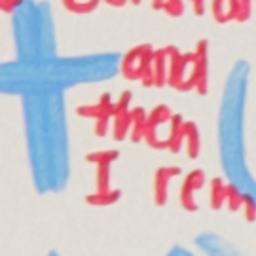 and
then
I rem